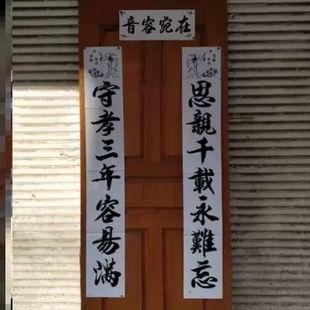 音容宛在
守孝三年容易滿
思親千載永難忘